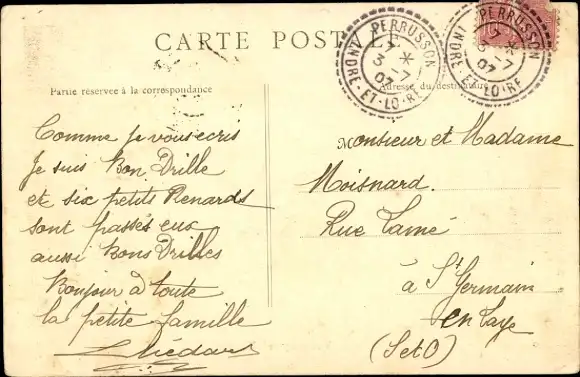 CARTE POSTALE
PERRUSSON
17 *
3 -7
07
INDRE-ET-LOIRE
PERRUSSON
17 *
3 -7
07
INDRE-ET-LOIRE
Partie réservée à la correspondance
Adresse du destinataire
Comme je vous ecris
Je suis Bon Drille
et six petits Renards
sont passés eux
aussi Bons Drilles
Bonjour à toute
la petite famille
Monsieur et Madame
Moisnard.
Rue Lamé
à St Germain
en Laye
(SetO)